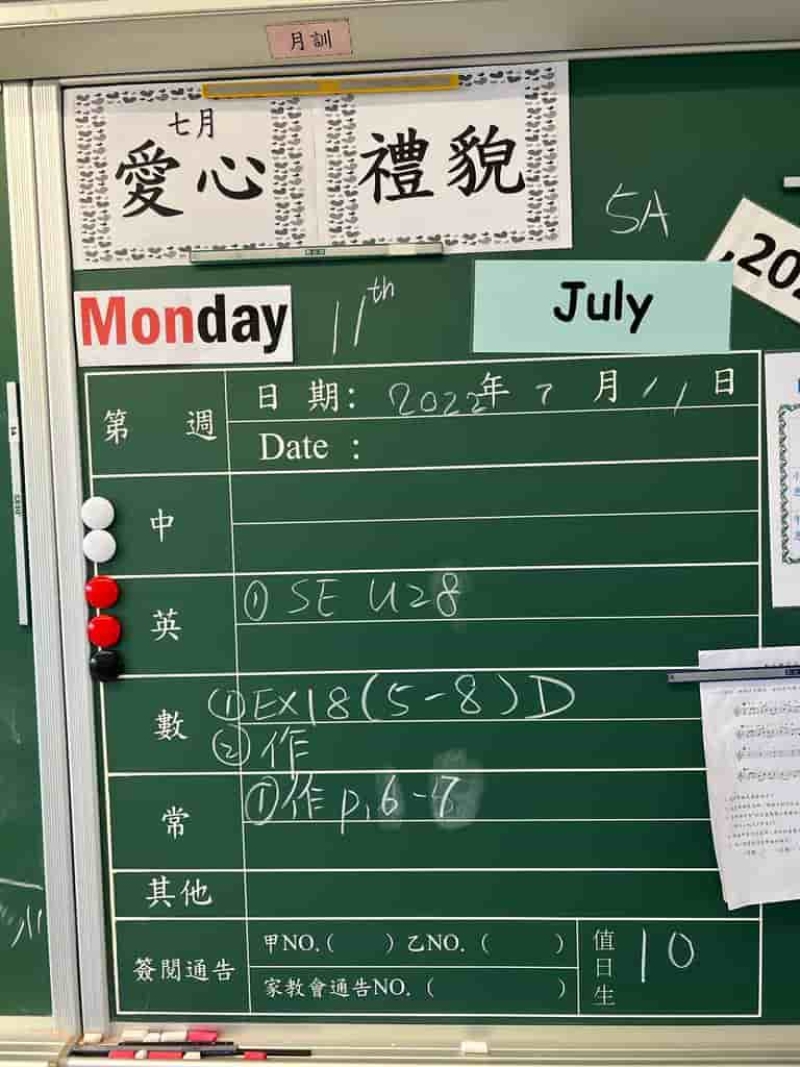 月訓
七月
愛心 禮貌
5A
, 202
Monday 11th July
第 週 日 期: 2022年 7 月 11 日
Date :
中
英 ① SE U28
數 ① EX18(5-8) D
② 作
常 ① 作 p.6-7
其他
簽閱通告 甲NO. ( ) 乙NO. ( )
家教會通告NO. ( )
值日生 10